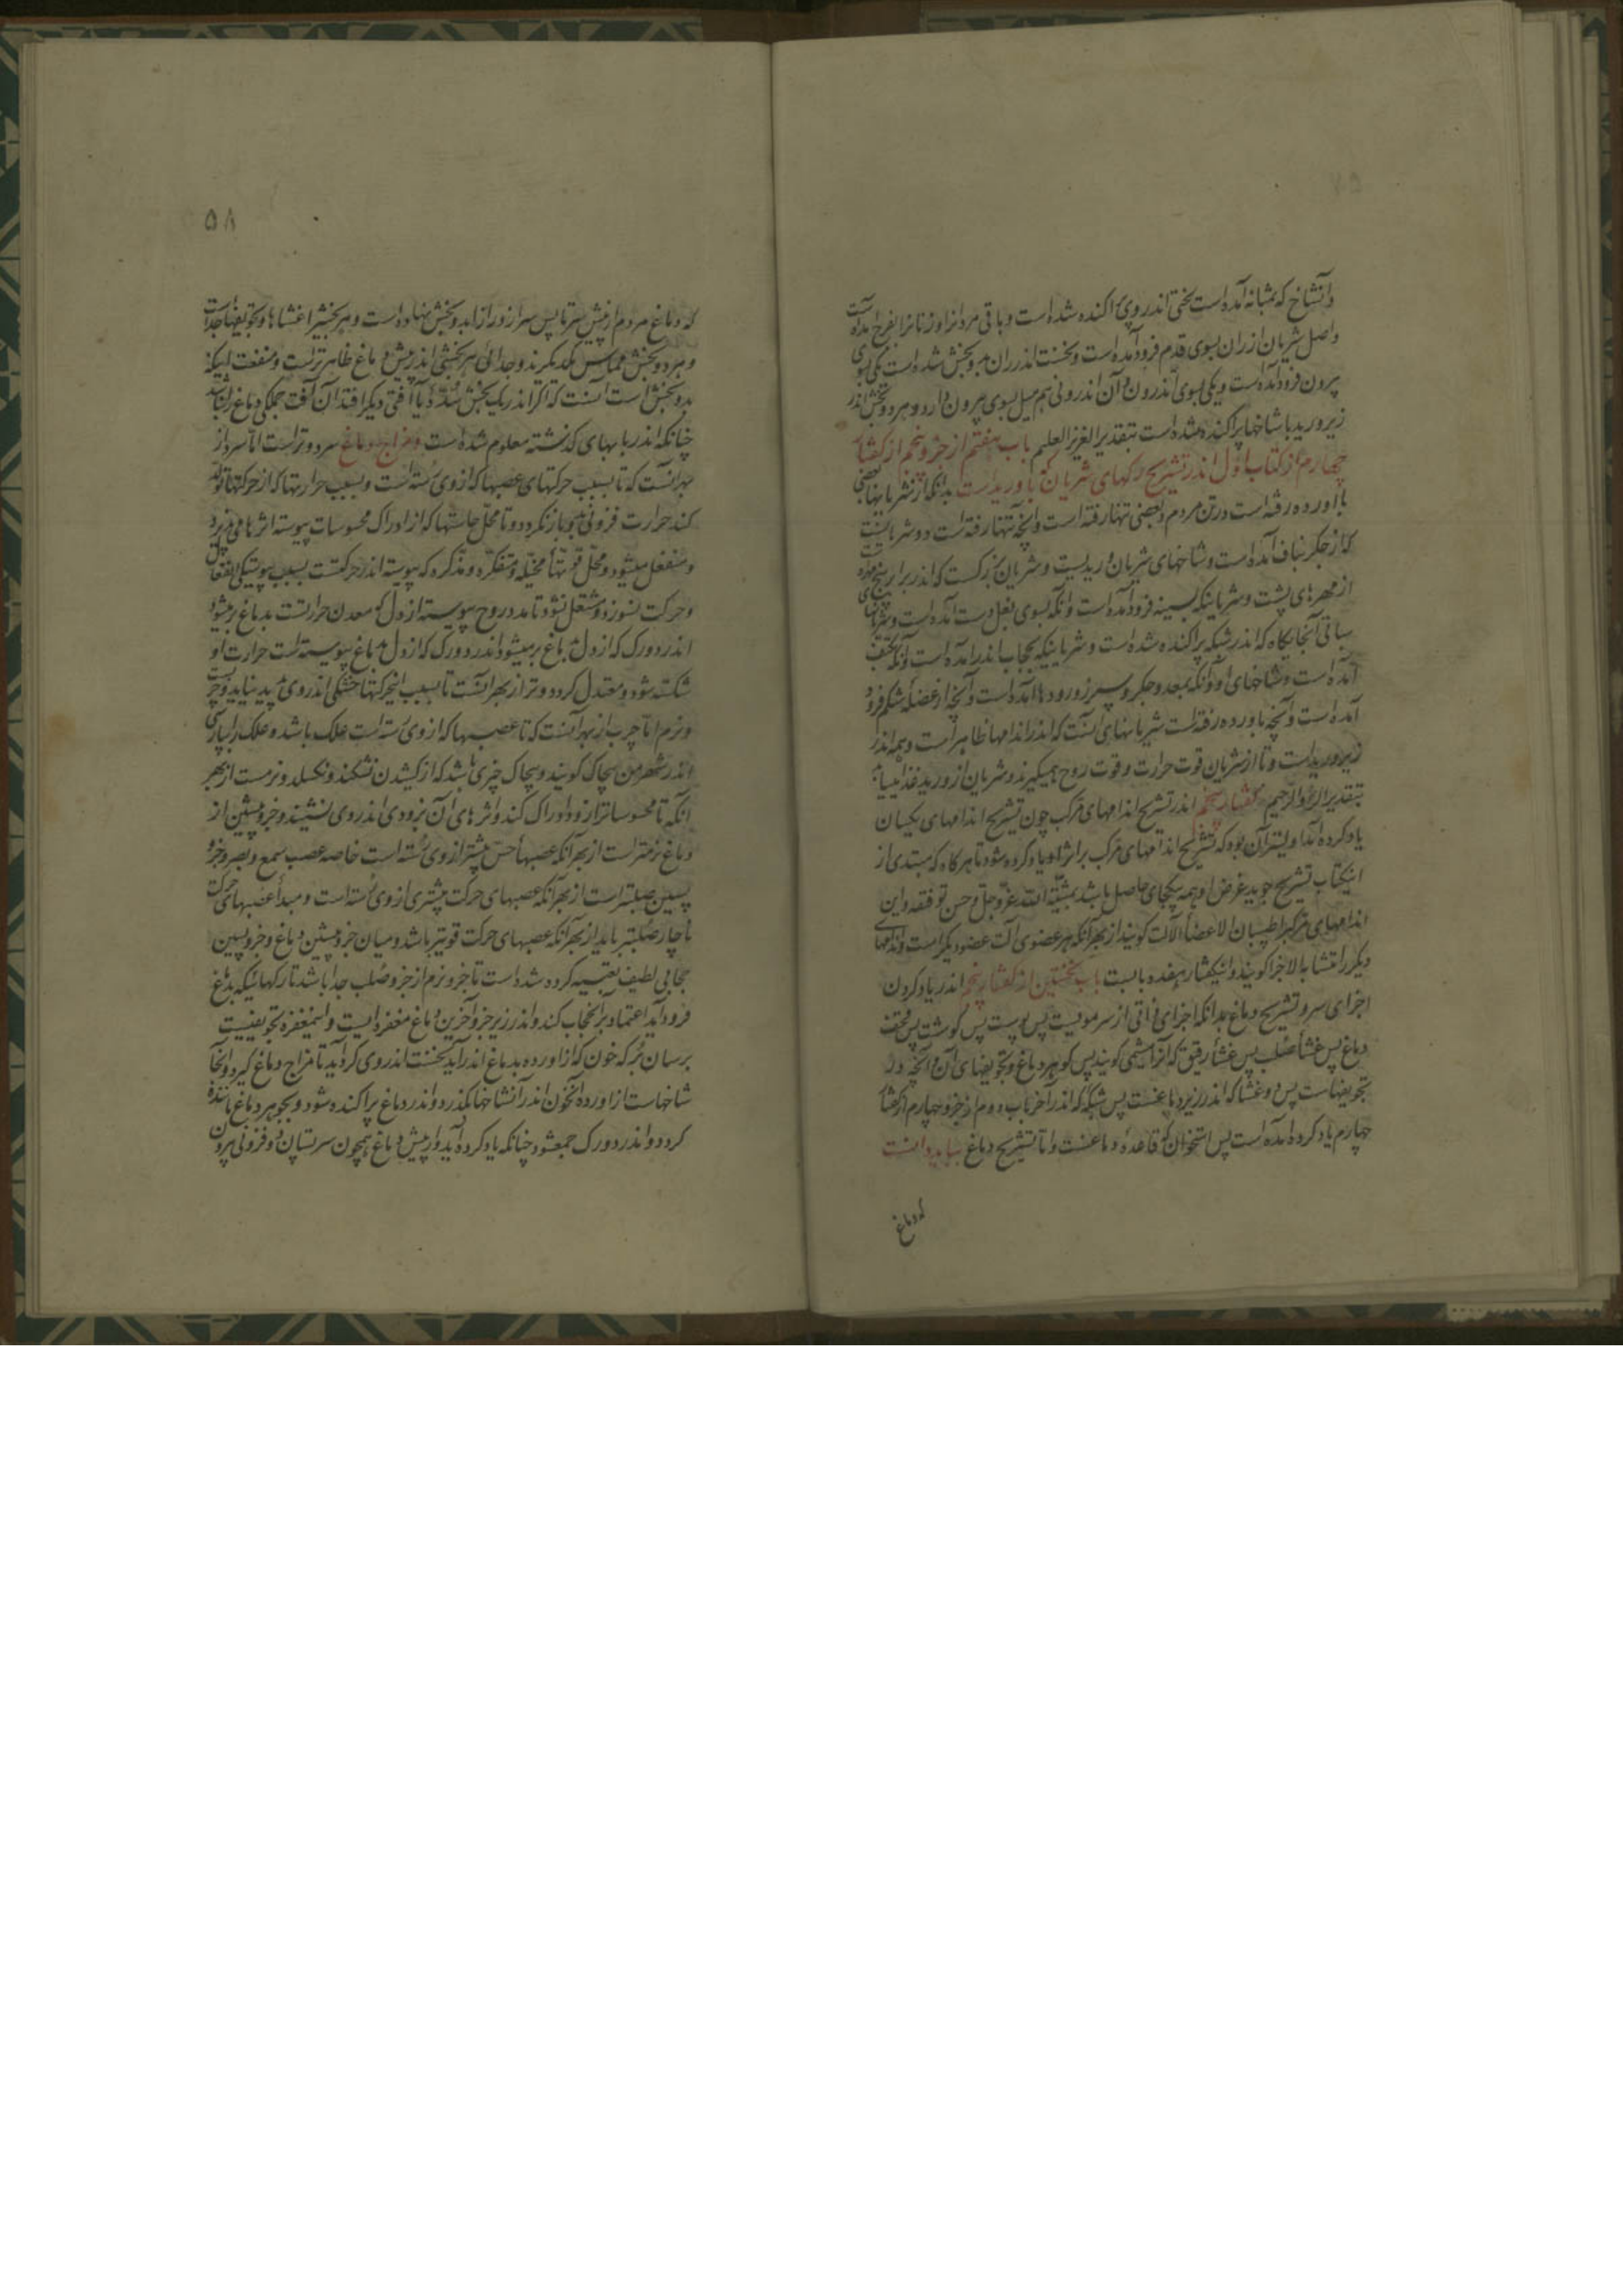 وانشاخ که بمثانه آمده است لختی اندر وی پراکنده شده است و باقی مردانرا و زنانرا بفرج آمده است
واصل شریان از ران بسوی قدم فرود آمده است و نخست اندر ران بدو بخش شده است یکی بسوی
بیرون فرود آمده است و یکی بسوی اندرون و آن اندرونی هم میل بسوی بیرون دارد و هر دو بخش اندر
زیر ورید با شاخها پراکنده شده است بتقدیر العزیز العلیم باب هفتم از جزو پنجم از گفتار
چهارم از کتاب اول اندر تشریح رگهای شریان که با ورید است بدانکه از شریانها بعضی
با اورده رفته است در تن مردم و بعضی تنها رفته است و آنچه تنها رفته است دو شریانست
که از جگر بناف آمده است و شاخهای شریان وریدیست و شریان بزرگست که اندر برابر پنج مهره
از مهرهای پشت و شریانیکه بسینه فرود آمده است و آنکه بسوی بغل دست آمده است و شریانها
سباتی آنجایگاه که اندر شبکه پراکنده شده است و شریانیکه بحجاب اندر آمده است و آنکه بکتف
آمده است و شاخهای او و آنکه بمعده و جگر و سپرز و رودها آمده است و آنچه از عضلهٔ شکم فرود
آمده است و آنچه با اورده رفته است شریانهای آنست که اندر اندامها ظاهر است و همه اندر
زیر ورید است و تا از شریان قوت حرارت و قوت روح همیگیرند و شریان از ورید غذا مییابد
بتقدیر البر و الرحیم گفتار پنجم اندر تشریح اندامهای مرکب چون تشریح اندامهای یکسان
یاد کرده آمد اولیتر آن بود که تشریح اندامهای مرکب بر اثر او یاد کرده شود تا هرگاه که مبتدی از
اینکتاب تشریح جوید غرض او همه بیکجای حاصل باشد بمشیة الله عز وجل وحسن توفیقه و این
اندامهای مرکبرا طبیبان الاعضأ الآلت گویند از بهر آنکه هر عضوی آلت عضو دیگر است و اندامهای
دیگر را متشابه الاجزا گویند و اینگفتار هفده بابست باب نخستین از گفتار پنجم اندر یاد کردن
اجزای سر و تشریح دماغ بدانکه اجزای ذاتی از سر مویست پس پوست پس گوشت پس قحف
دماغ پس غشأ صلب پس غشأ رقیق که آنرا مشیمی گویند پس گوهر دماغ و تجویفهای آن و آنچه در
تجویفهاست پس دو غشا که اندر زیر دماغست پس شبکه که اندر آخر باب دوم از جزو چهارم از گفتار
چهارم یاد کرده آمده است پس استخوان که قاعدهٔ دماغست و اما تشریح دماغ بباید دانست
که دماغ
۵۸
که دماغ مردم از پیش سر تا پس سر از درازا بدو بخش نهاده است و هر بخشیرا غشاها و تجویفها جداست
و هر دو بخش مماس یکدیگرند و جدائی هر بخشی اندر پیش دماغ ظاهرتر است و منفعت اینکه
بدو بخش است آنست که اگر اندر یک بخش سده یا آفتی دیگر افتد آن آفت جملگی دماغ را نباشد
چنانکه اندر بابهای گذشته معلوم شده است و مزاج دماغ سرد و تر است اما سرد از
بهر آنست که تا بسبب حرکتهای عصبها که از وی رسته است و بسبب حرارتها که از حرکتها تولد
کند حرارت فزونی بدو باز نگردد و تا محل حاستها که از ادراک محسوسات پیوسته اثرها می پذیرد
و منفعل میشود و محل قوتها مخیله و متفکره و مذکره که پیوسته اندر حرکتست بسبب پیوستگی انفعال
و حرکت نسوزد و مشتعل نشود تا مدد روح پیوسته از دل که معدن حرارتست بدماغ بر میشود
اندر دو رگ که از دل بدماغ بر میشود اندر دو رگ که از دل بدماغ پیوسته است حرارت او
شکسته شود و معتدل گردد و تر از بهر آنست تا بسبب اینحرکتها خشکی اندر وی پدید نیاید و چربست
و نرم اما چرب از بهر آنست که تا عصبها که از وی رسته است علک باشد و علک را بپارسی
اندر شهر من بچاک گویند و بچاک چیزی باشد که از کشیدن نشکند و نگسلد و نرمست از بهر
آنکه تا محسوساترا زود ادراک کند و اثرهای آن بزودی اندر وی نشیند و جزو پیشین از
دماغ نرمتر است از بهر آنکه عصبهأ حس بیشتر از وی رسته است خاصه عصب سمع و بصر و جزو
پسین صلبتر است از بهر آنکه عصبهای حرکت بیشتری از وی رسته است و مبدأ عصبهای حرکت
ناچار صلبتر باید از بهر آنکه عصبهای حرکت قویتر باشد و میان جزو پیشین دماغ و جزو پسین
حجابی لطیف تعبیه کرده شده است تا جزو نرم از جزو صلب جدا باشد تا رگهائیکه بدماغ
فرود آید اعتماد بر آنحجاب کند و اندر زیر جزو آخرین دماغ مغفره ایست و اینمغفره تجویفیست
بر سان برکه خون که از اورده بدماغ اندر آید نخست اندر وی گرد آید تا مزاج دماغ گیرد و آنجا
شاخهاست از اورده آنخون اندر آنشاخها بگذرد و اندر دماغ پراکنده شود و بجوهر دماغ ماننده
گردد و اندر دو رگ جمعشود چنانکه یاد کرده آید و از پیش دماغ همچون سر پستان دو فزونی بیرون